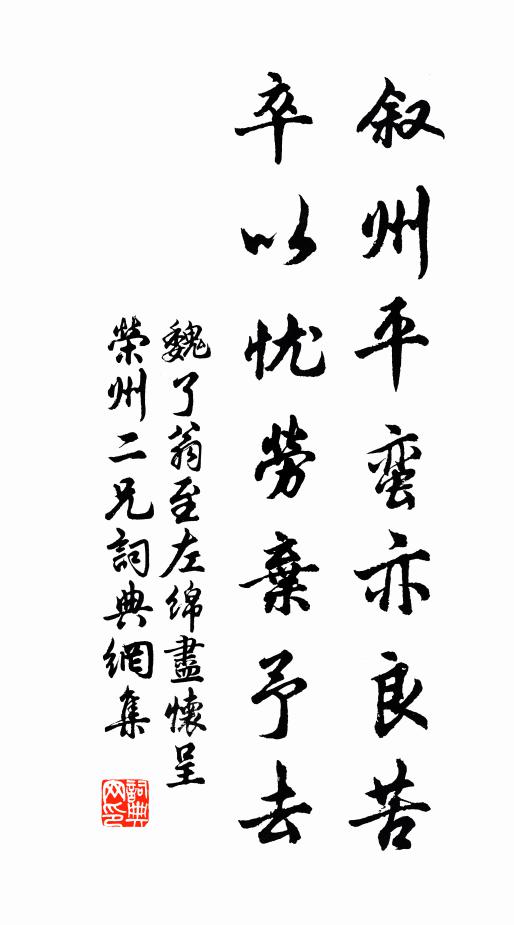 叙州平蛮亦良苦
卒以忧劳棄予去
魏了翁至左绵盡懷呈
榮州二兄詞典網集
詞典网印